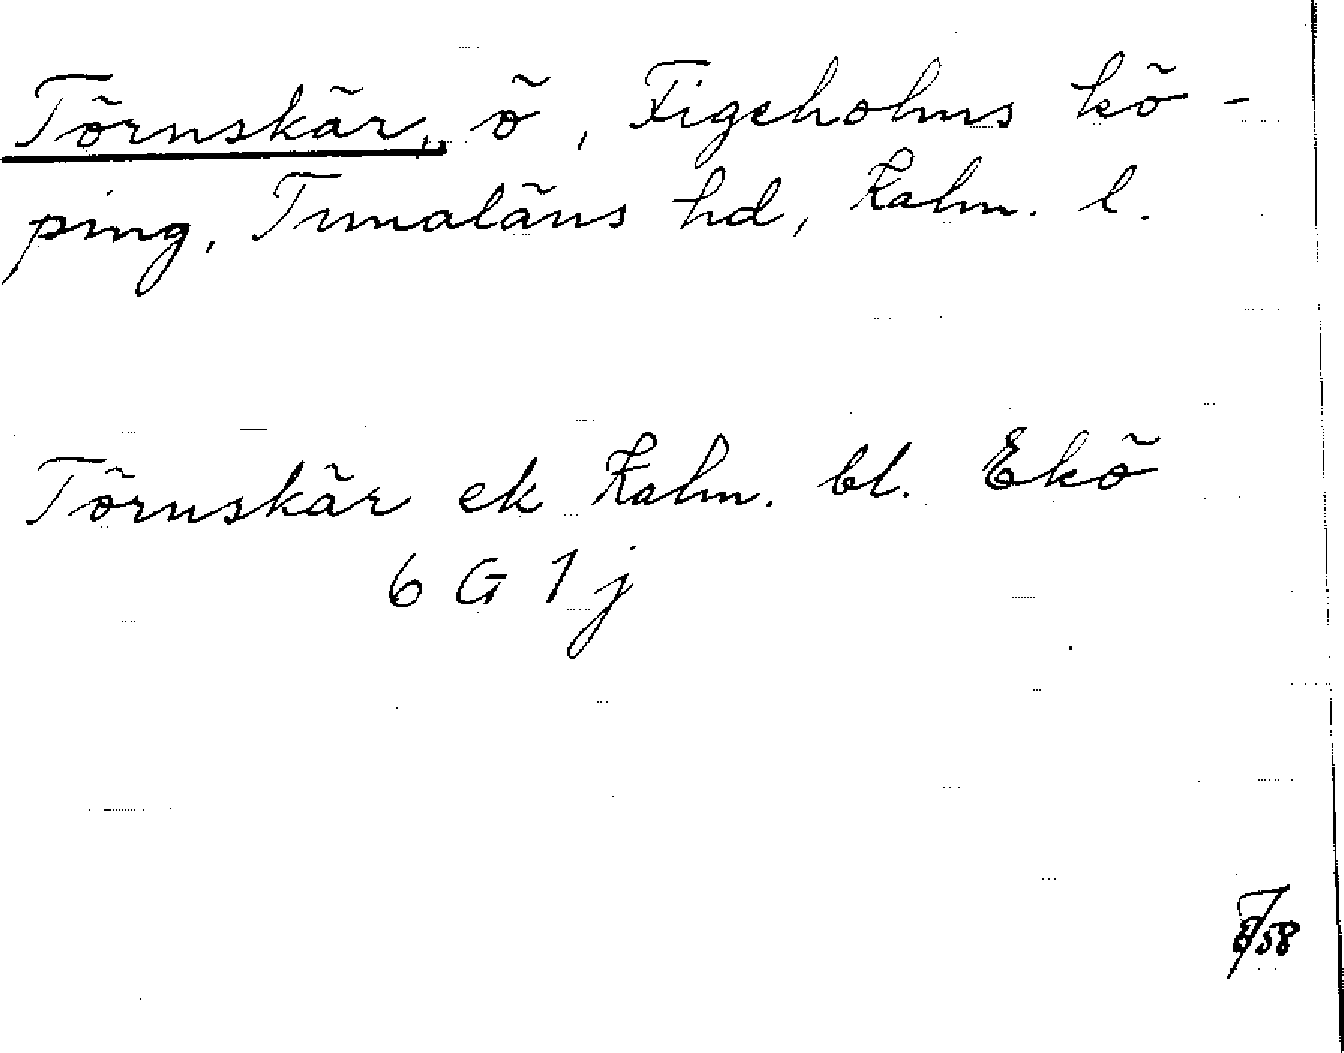 Törnskär, ö, Figeholms kö-
ping, Tunaläns hd, Kalm. l.
Törnskär ek Kalm. bl. Ekö
6 G 1 j